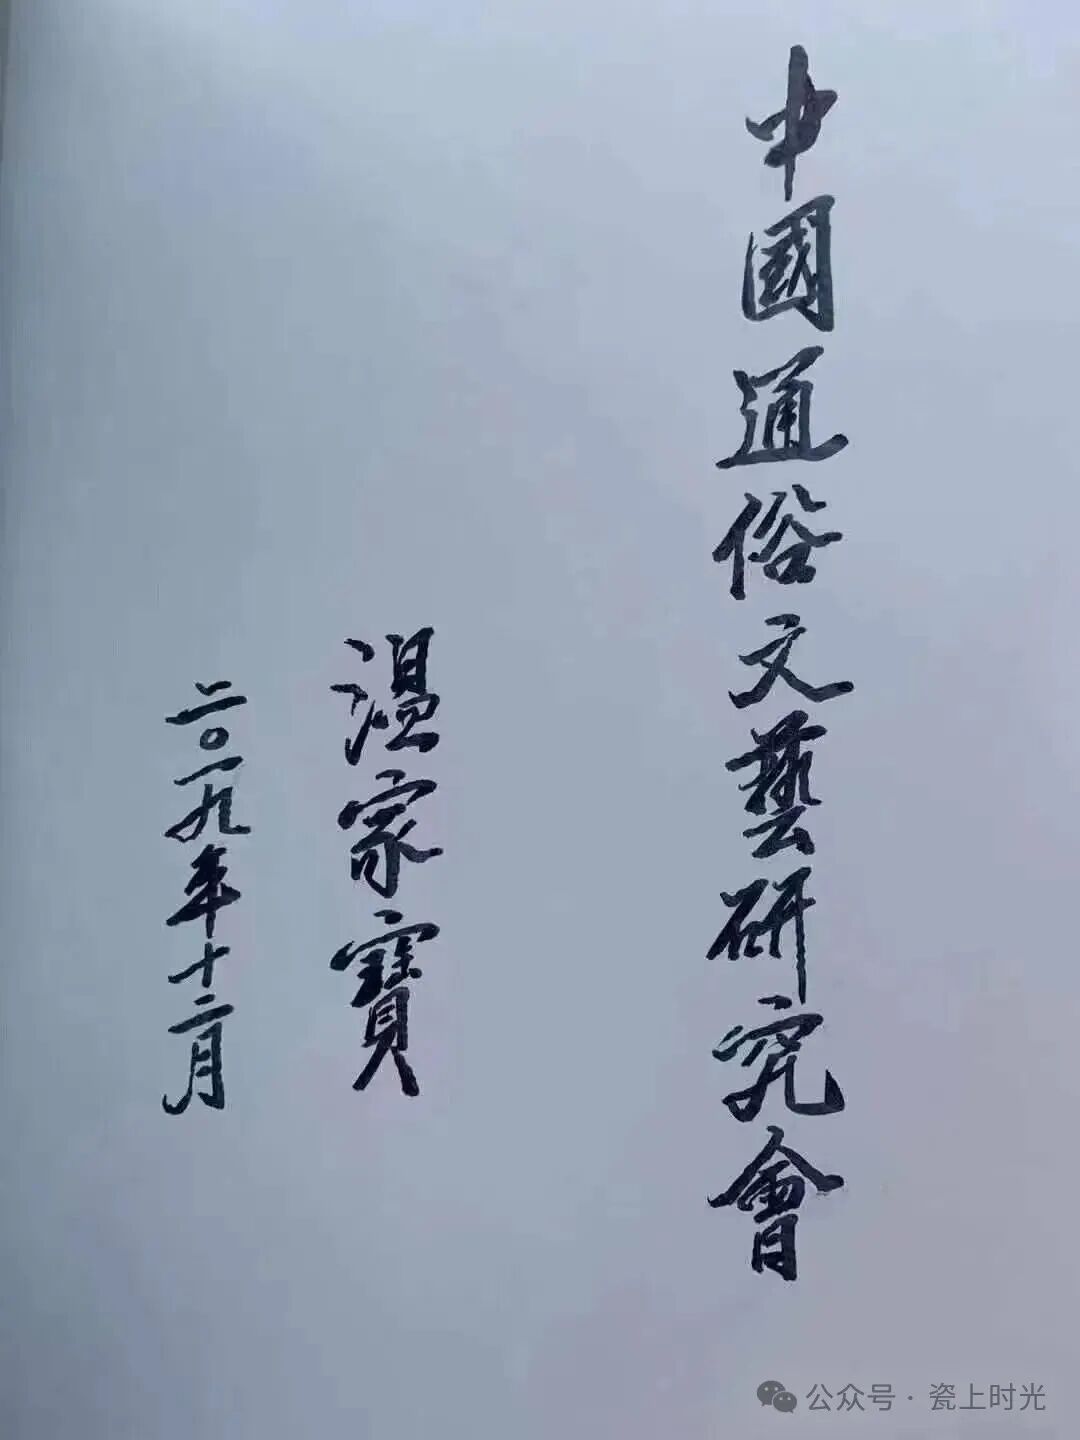 中國通俗文藝研究會
温家寶
二〇一九年十二月
公众号·瓷上时光